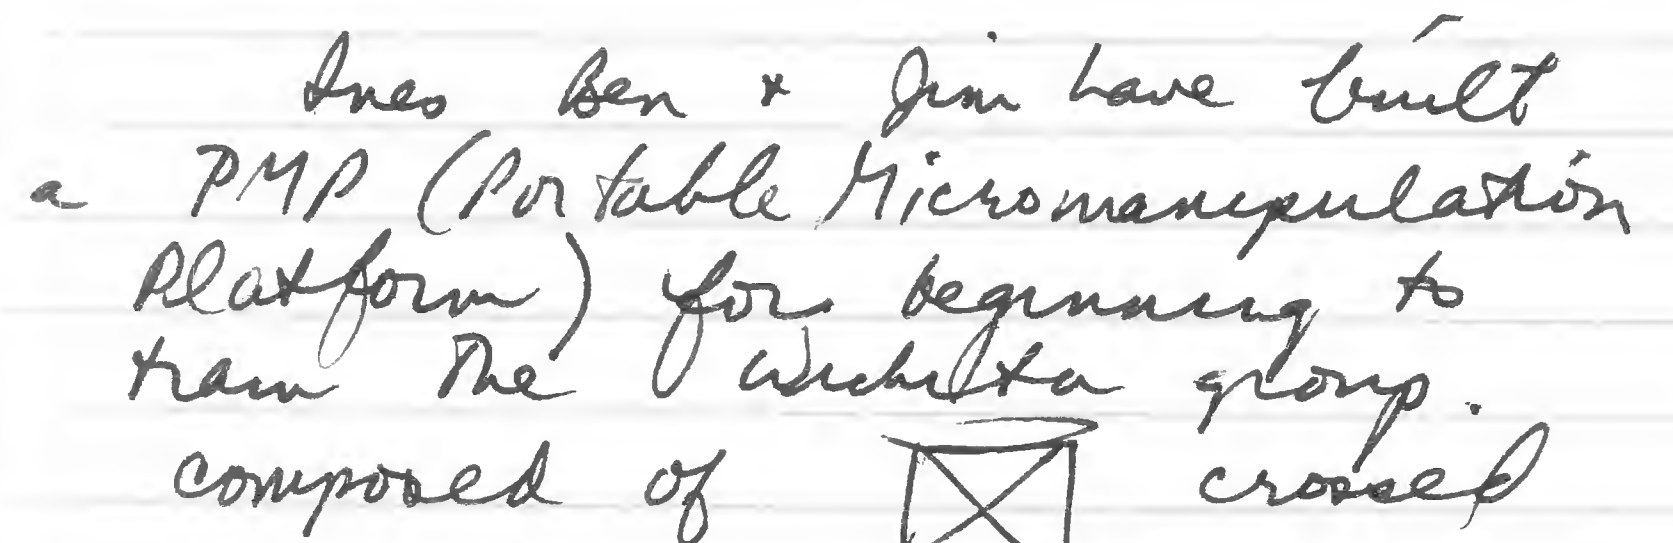 Ines Ben & Jim have built
a PMP (Portable Micromanipulation
Platform) for beginning to
train the Wichita group.
composed of crossed